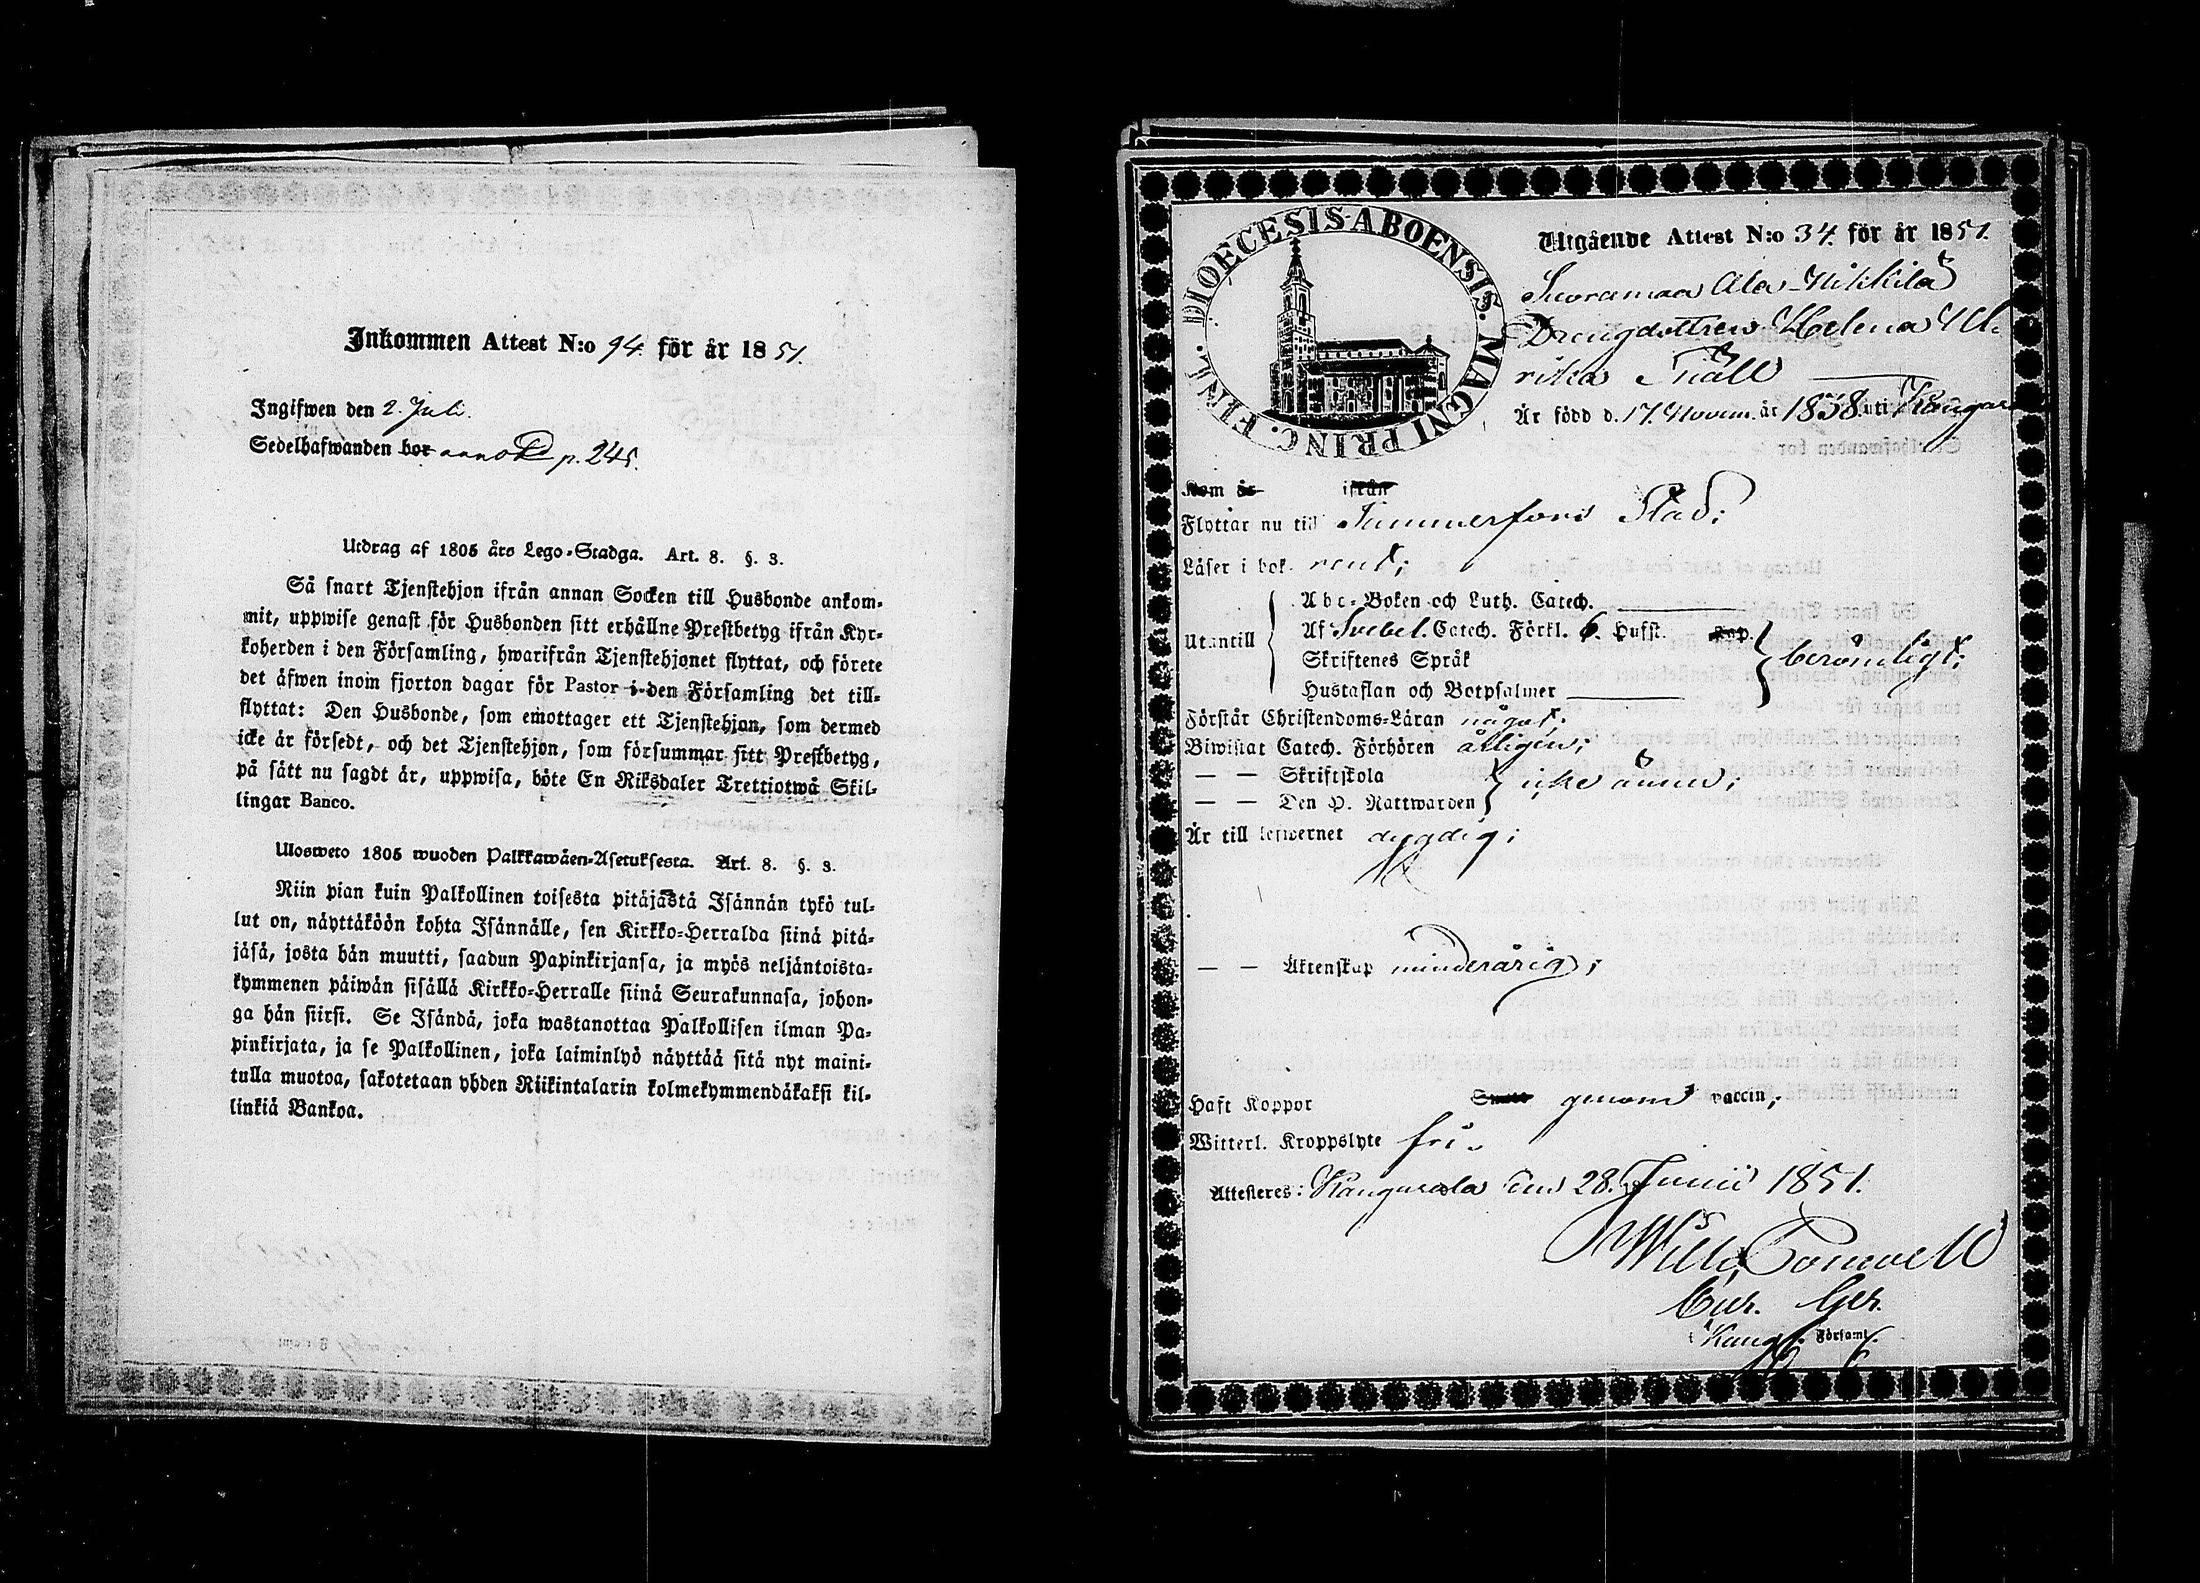 Inkommen Attest N:o 94. för år 1851.
Ingifwen den 2. Juli.
Sedelhafwanden bor anno p. 245.
Utdrag af 1805 års Lego-Stadga. Art. 8. §. 3.
Så snart Tjenstehjon ifrån annan Socken till Husbonde ankom-
mit, uppwise genast för Husbonden sitt erhållne Prestbetyg ifrån Kyr-
koherden i den Församling, hwarifrån Tjenstehjonet flyttat, och förete
det äfwen inom fjorton dagar för Pastor i den Församling det till-
flyttat: Den Husbonde, som emottager ett Tjenstehjon, som dermed
icke är försedt, och det Tjenstehjon, som försummar sitt Prestbetyg,
på sätt nu sagdt är, uppwisa, böte En Riksdaler Trettiotwå Skil-
lingar Banco.
Ulosweto 1805 wuoden Palkkawäen-Asetuksesta. Art. 8. §. 3.
Niin pian kuin Palkollinen toisesta pitäjästä Isännän tykö tul-
lut on, näyttäköön kohta Isännälle, sen Kirkko-Herralda siinä pitä-
jäsä, josta hän muutti, saadun Papinkirjansa, ja myös neljäntoista-
kymmenen päiwän sisällä Kirkko-Herralle siinä Seurakunnasa, johon-
ga hän siirsi. Se Isändä, joka wastanottaa Palkollisen ilman Pa-
pinkirjata, ja se Palkollinen, joka laiminlyö näyttää sitä nyt maini-
tulla muotoa, sakotetaan yhden Riikintalarin kolmekymmendäkaksi kil-
linkiä Bankoa.
DIOECESIS ABOENSIS. MAGNI PRINC. FINL.
Utgående Attest N:o 34. för år 1851.
Suoramaa Ala-Nikkilä
Drengdottren Helena Ul-
rika Snäll
Är född d. 17. Novem. år 1838 uti Kangas
Kom år ifrån
Flyttar nu till Tammerfors Stad;
Läser i bok rent;
Utantill
Abc-Boken och Luth. Catech.
Af Svebel. Catech. Förkl. 6. Hufst. Kap.
Skriftenes Språk
Hustaflan och Botpsalmer
berömligt;
Förstår Christendoms-Läran något;
Biwistat Catech. Förhören årligen;
— — Skriftskola
— — Den H. Nattwarden
icke ännu;
Är till lefwernet dygdig;
— — Äktenskap minderårig;
Haft Koppor genom vaccin;
Witterl. Kroppslyte fri.
Attesteres: Kangasala den 28. Junii 1851.
Kang. Församl.